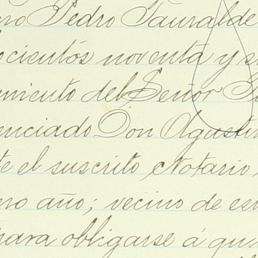 ero Pedro Iturralde
ocientos noventa y s
imiento del Señor
enciado Don Agustin
te el suscrito Notario,
ero año; vecino de es
para obligarse á qu